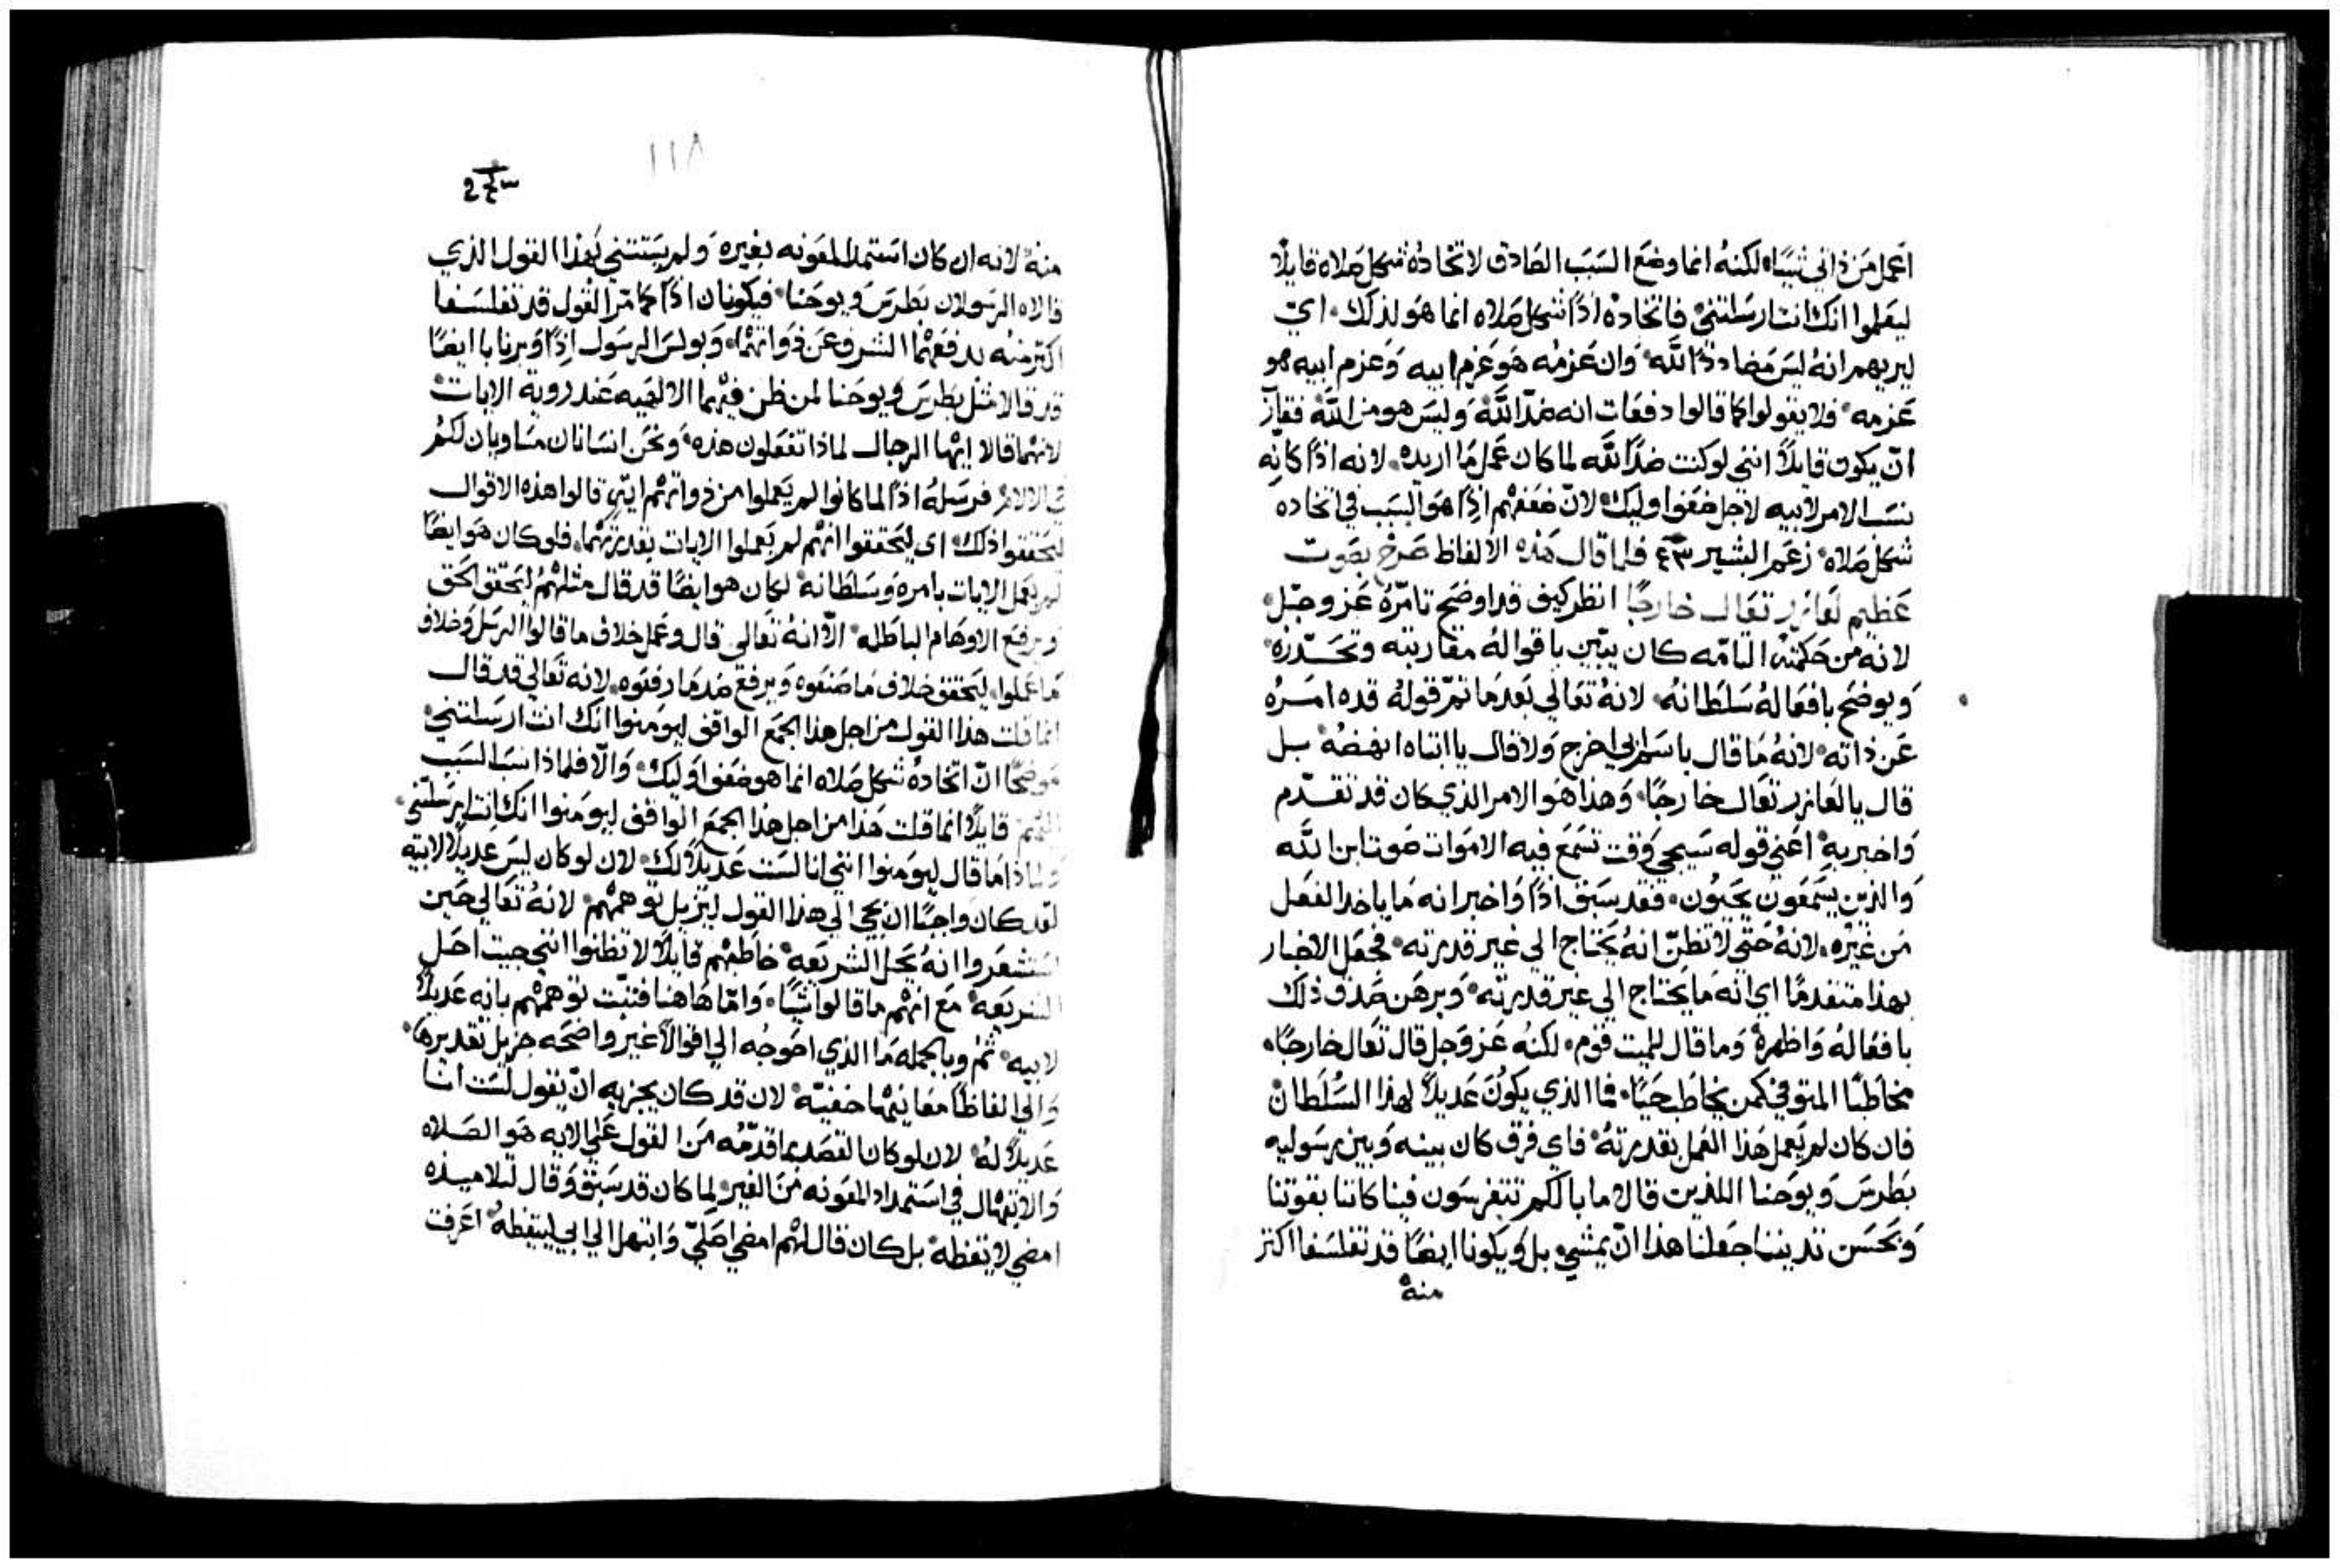 اعمل من ذاتي شيًا، لكنهُ انما وضع السَبَب الصَادق لاتخادهُ شكل صَلاه قايلًا
ليعَلموا انك انت ارسَلتني، فاتخادهُ اذًا شكل صَلاه انما هو لذلك، اي
ليريهم انهُ ليسَ مَضاددًا لله، وَان عَزمُه هَو عَزم ابيه وَعزم ابيه هو
عَزمه، فلا يقولوا كما قالوا دفعَات انه ضدّ الله وَليسَ هو من الله فقارَ
انّ يكون قايلًا انني لو كنت ضدًا لله لما كان عَمل مَا اريده، لانه اذًا كانه
نسَب الامر لابيه لاجل ضعَف اوليك، لانّ ضعَفهم اذًا هوَ السَبب في اتخاده
شكل صَلاه، زعَم البشير ٤٣ فلما قال هَذه الالفاظ صَرخ بصَوت
عَظيم لعَازر تعَال خارجًا انظر كيف قد اوضح تامّرهُ عَز وجَل،
لانه من حَكمته التامّه كان يبّين باقوالهُ مقاربته وتحَدّره،
وَيوضح بافعَالهُ سَلطَانهُ، لانهُ تعَالي بَعد مَا تمّ قولهُ قده امَرهُ
عَن ذاته، لانهُ مَا قال باسَم ابي اخرج وَلا قال يا ابتاه انهضهُ، بل
قال يا لعَازر تعَال خارجًا، وَهذا هَو الامر الذي كان قد تقدّم
وَاخبر به، اعَني قوله سَيجي وَقت تسَمَع فيه الامَوات صَوت ابن الله
وَالذين يسَمعَون يحَيون، فقد سَبق اذًا وَاخبر انه مَا ياخد الفعَل
مَن غيَره، لانهُ حَتي لا تظنّ انهُ يحَتاج الي غير قدرته، فجعَل الاخبار
بهذا متقدمًا اي انه مَا يحَتاج الي غير قدرته، وَبرهَن صَدق ذلك
بافعَالهُ وَاظهرهُ وَما قال للميت قوم، لكنهُ عَز وَجل قال تعَال خارجًا،
مخاطبًا المتوفي كمن يخاطَب حَيًا، فما الذي يكون عَديلًا لهذا السُلطان
فان كان لم يَعمل هَذا العَمل بقدرتهُ، فاي فرق كان بينه وَبين رسَوليه
بَطرسَ وَيوحَنا اللذين قالا ما بالكم تتفرسَون فينا كاننا بقوتنا
وَبحَسَن تديننا جعَلنا هذا انّ يمشي، بل وَيكونا ايضًا قد تفلسَفا اكتر
منهُ
١١٨
منهُ، لانه ان كان استمد المعَونه بغيره وَلم يسَتتني بَهذا القول الذي
قالاه الرسَولان بَطرسَ ويوحَنا، فيكونان اذًا كما مّر القول قد تفلسَفا
اكتر منه بدفعَهما الشرف عَن ذوَاتهما، وَبولسَ الرسَول اذًا وَبرنابا ايضًا
قد قالا متل بطرسَ وَيوحَنا لمن ظن فيهَما الالهَيه عَند روية الايات
لانهَما قالا ايهَا الرجال لماذا تفعَلون هذه، وَنحَن انسَانان مسَاويان لكم
في الالام، فرسَلهُ اذًا لما كانوا لم يَعملوا من ذواتهَم ايتي قالوا هذه الاقوال
ليحَققوا ذلك، اي ليحَققوا انهَم لم يعَملوا الايات بقدرتهَما، فلو كان هَو ايضًا
لم يعَمل الايات بامره وَسَلطَانه، لكان هو ايضًا قد قال متلهَم ليحَقق الحَق
وَيرفعَ الاوهَام الباطله، الّا انهُ تعَالي قال وعَمل خلاف ما قالوا الرسَل وَخلاف
مَا عَملوا، ليحَقق خلاف مَا صَنعَوه وَيرفع ضد مَا رفعَوه، لانه تعَالي قد قال
انما قلت هذا القول من اجل هذا الجمَع الواقف ليومَنوا انك انت ارسَلتني،
مَوضحًا انّ اتخادهُ شكل صَلاه انما هو ضعَف اوليك، وَالّا فلماذا نسَب السَبب
اليهم قايلًا انما قلت هَذا من اجل هذا الجمَع الواقف ليومَنوا انك انت ارسَلتني،
وَلماذا مَا قال ليومَنوا انني انا لسَت عَديلًا لك، لان لو كان ليسَ عديلًا لابيه
لقد كان وَاجبًا ان يجي الي هذا القول ليزيل توهمهَم، لانهُ تعَالي حَين
استشعَروا انهُ يحَل الشريعَه، خاطبهَم قايلًا لا تظنوا انني جيت احَل
الشريعَه، مَع انهَم ما قالوا شيًا، وَامّا هَاهنا فتبّت توهمهَم بانه عَديلًا
لابيه، تم وبالجمله مَا الذي احَوجُه الي اقوالًا غير واضحَه جزيل تقديرها،
وَالي الفاظًا معَانيهَا خفيّه، لان قد كان يجزيه انّ يقول لسَت انا
عَديلًا لهُ، لان لو كان القصَد بما قدّمُه مَن القول عَلي الايه هَو الصَلاه
وَالابتهَال في استمداد المعَونه مَن الغير، لما كان قد سَبق وَقال لتلاميذه
امضي لايقظه، بل كان قال لهَم امضي اصَلي وَابتهل الي ابي ليقظهُ، اعَرفت